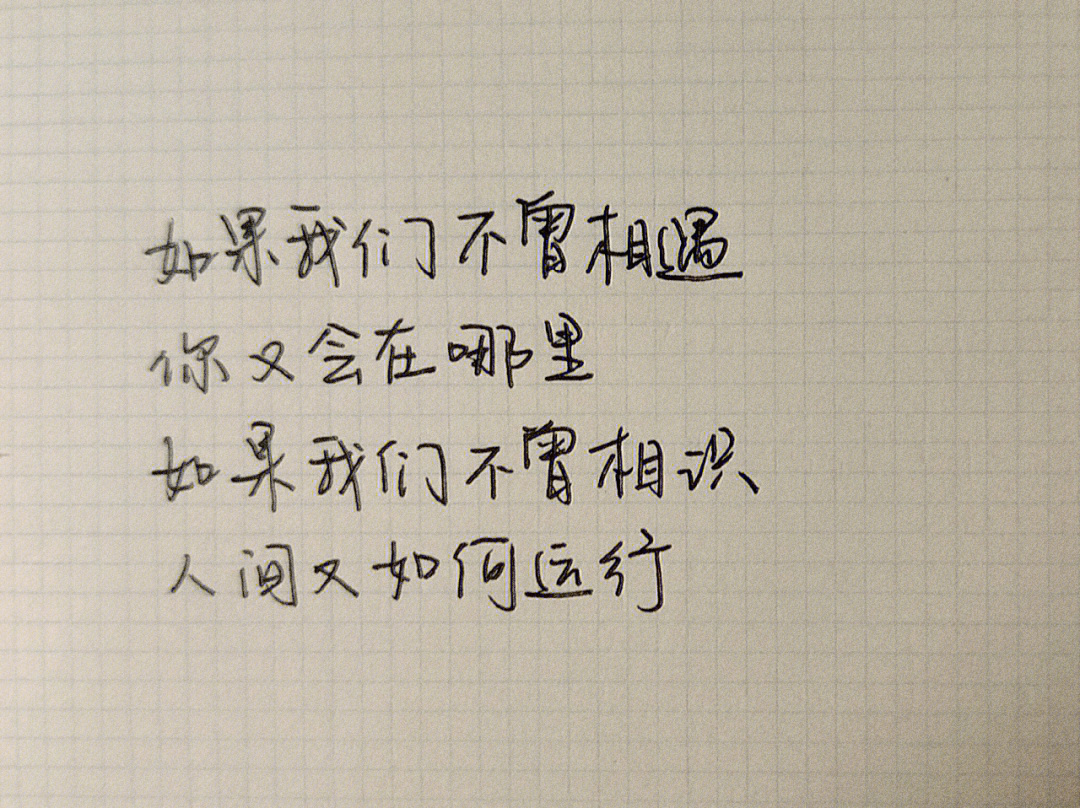 如果我们不曾相遇
你又会在哪里
如果我们不曾相识
人间又如何运行